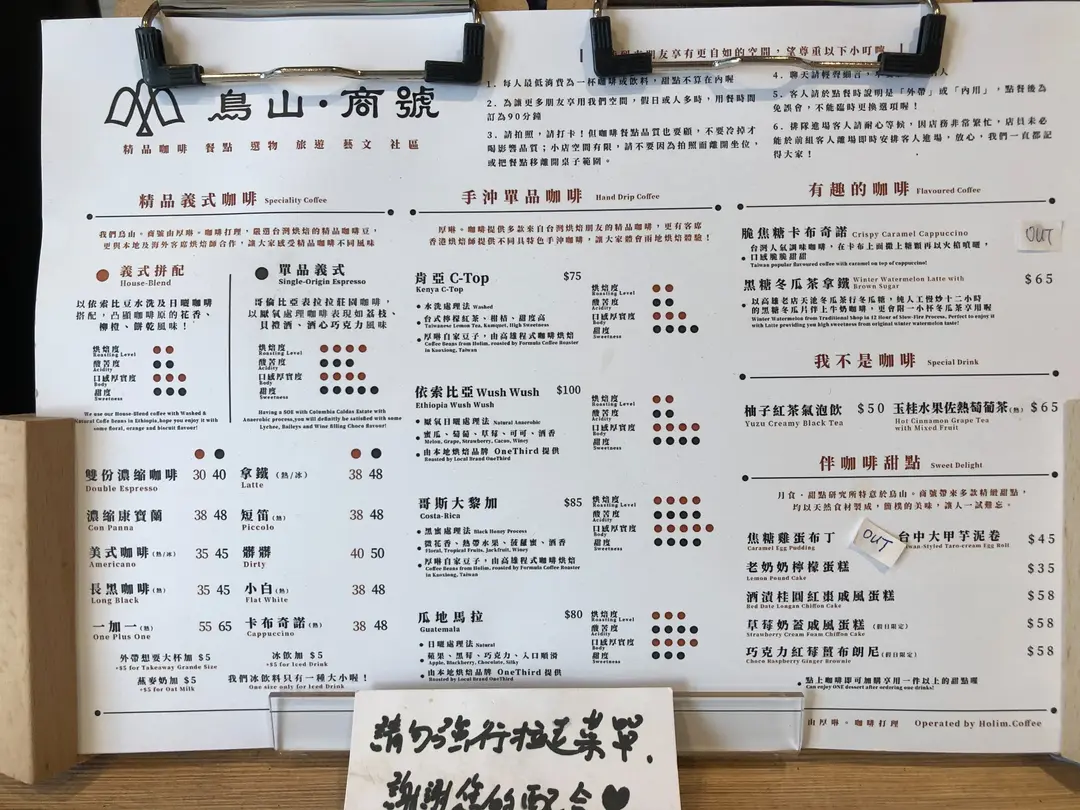 鳥山·商號
精品咖啡 餐點 選物 旅遊 藝文 社區
朋友享有更自如的空間，望尊重以下小叮嚀
1. 每人最低消費為一杯咖啡或飲料，甜點不算在內喔
2. 為讓更多朋友享用我們空間，假日或人多時，用餐時間
訂為90分鐘
3. 請拍照，請打卡！但咖啡餐點品質也要顧，不要冷掉才
喝影響品質；小店空間有限，請不要因為拍照而離開坐位，
或把餐點移離開桌子範圍。
4. 聊天請輕聲細語，
5. 客人請於點餐時說明是「外帶」或「內用」，點餐後為
免誤會，不能臨時更換選項喔！
6. 排隊進場客人請耐心等候，因店務非常繁忙，店員未必
能於前組客人離場即時安排客人進場，放心，我們一直都記
得大家！
精品義式咖啡 Speciality Coffee
我們鳥山。商號由厚琳。咖啡打理，嚴選台灣烘焙的精品咖啡豆，
更與本地及海外客席烘焙師合作，讓大家感受精品咖啡不同風味
義式拼配
House-Blend
以依索比亞水洗及日曬咖啡
搭配，凸顯咖啡原的花香、
柳橙、餅乾風味！
烘焙度
Roasting Level
酸苦度
Acidity
口感厚實度
Body
甜度
Sweetness
We use our House-Blend coffee with Washed &
Natural Coffe Beans in Ethiopia,hope you enjoy it with
some floral, orange and biscuit flavour!
單品義式
Single-Origin Espresso
哥倫比亞表拉拉莊園咖啡，
以厭氧處理咖啡表現如荔枝、
貝禮酒、酒心巧克力風味
烘焙度
Roasting Level
酸苦度
Acidity
口感厚實度
Body
甜度
Sweetness
Having a SOE with Columbia Caldas Estate with
Anaerobic process,you will definitly be satisfied with some
Lychee, Baileys and Wine Filling Choco flavour!
雙份濃縮咖啡 30 40
Double Espresso
拿鐵 (熱/冰) 38 48
Latte
濃縮康寶蘭 38 48
Con Panna
短笛(熱) 38 48
Piccolo
美式咖啡(熱/冰) 35 45
Americano
髒髒 40 50
Dirty
長黑咖啡(熱) 35 45
Long Black
小白(熱) 38 48
Flat White
一加一(熱) 55 65
One Plus One
卡布奇諾(熱) 38 48
Cappuccino
外帶想要大杯加 $5
+$5 for Takeaway Grande Size
冰飲加 $5
+$5 for Iced Drink
燕麥奶加 $5
+$5 for Oat Milk
我們冰飲料只有一種大小喔！
One size only for Iced Drink
手沖單品咖啡 Hand Drip Coffee
厚琳。咖啡提供多款來自台灣烘焙朋友的精品咖啡，更有客席
香港烘焙師提供不同具特色手沖咖啡，讓大家體會兩地烘焙體驗！
肯亞 C-Top $75
Kenya C-Top
水洗處理法 Washed
台式檸檬紅茶、柑桔、甜度高
Taiwanese Lemon Tea, Kumquat, High Sweetness
厚琳自家豆子，由高雄程式咖啡烘焙
Coffee Beans from Holim, roasted by Formula Coffee Roaster
in Kaoxiong, Taiwan
烘焙度
Roasting Level
酸苦度
Acidity
口感厚實度
Body
甜度
Sweetness
依索比亞 Wush Wush $100
Ethiopia Wush Wush
厭氧日曬處理法 Natural Anaerobic
蜜瓜、葡萄、草莓、可可、酒香
Melon, Grape, Strawberry, Cacao, Winey
由本地烘焙品牌 OneThird 提供
Roasted by Local Brand OneThird
烘焙度
Roasting Level
酸苦度
Acidity
口感厚實度
Body
甜度
Sweetness
哥斯大黎加 $85
Costa-Rica
黑蜜處理法 Black Honey Process
微花香、熱帶水果、菠蘿蜜、酒香
Floral, Tropical Fruits, Jackfruit, Winey
厚琳自家豆子，由高雄程式咖啡烘焙
Coffee Beans from Holim, roasted by Formula Coffee Roaster
in Kaoxiong, Taiwan
烘焙度
Roasting Level
酸苦度
Acidity
口感厚實度
Body
甜度
Sweetness
瓜地馬拉 $80
Guatemala
日曬處理法 Natural
蘋果、黑莓、巧克力、入口順滑
Apple, Blackberry, Chocolate, Silky
由本地烘焙品牌 OneThird 提供
Roasted by Local Brand OneThird
烘焙度
Roasting Level
酸苦度
Acidity
口感厚實度
Body
甜度
Sweetness
有趣的咖啡 Flavoured Coffee
脆焦糖卡布奇諾 Crispy Caramel Cappuccino
OUT
台灣人氣調味咖啡，在卡布上面撒上糖顆再以火槍噴砸，
口感脆脆甜甜
Taiwan popular flavoured coffee with caramel on top of cappuccino!
黑糖冬瓜茶拿鐵 Winter Watermelon Latte with
Brown Sugar
$65
以高雄老店天池冬瓜茶行冬瓜糖，純人工慢炒十二小時
的黑糖冬瓜片伴上牛奶咖啡，更會附一小杯冬瓜茶享用喔
Winter Watermelon from Traditional Shop in 12 Hour of Slow-Fire Process, Perfect to enjoy it
with Latte providing you high sweetness from original winter watermelon taste!
我不是咖啡 Special Drink
柚子紅茶氣泡飲 $50
Yuzu Creamy Black Tea
玉桂水果佐熱萄葡茶(熱) $65
Hot Cinnamon Grape Tea
with Mixed Fruit
伴咖啡甜點 Sweet Delight
月食。甜點研究所特意於鳥山。商號帶來多款精緻甜點，
均以天然食材製成，簡樸的美味，讓人一試難忘。
焦糖雞蛋布丁
Caramel Egg Pudding
OUT
台中大甲芋泥卷 $45
wan-Styled Taro-cream Egg Roll
老奶奶檸檬蛋糕 $35
Lemon Pound Cake
酒漬桂圓紅棗戚風蛋糕 $58
Red Date Longan Chiffon Cake
草莓奶蓋戚風蛋糕 (假日限定) $58
Strawberry Cream Foam Chiffon Cake
巧克力紅莓薑布朗尼(假日限定) $58
Choco Raspberry Ginger Brownie
點上咖啡即可加購享用一件以上的甜點喔
Can enjoy ONE dessert after ordering one drinks!
由厚琳。咖啡打理 Operated by Holim.Coffee
請勿強行拉走菜單.
謝謝您的配合♥